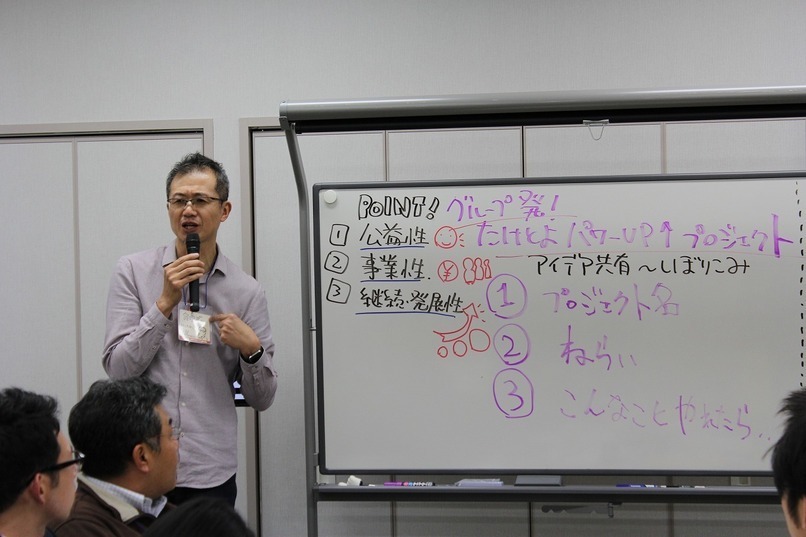 POINT! グループ発!
1 公益性 たけとよパワーUP↑プロジェクト
2 事業性. ¥ アイデア共有~しぼりこみ
3 継続・発展性
① プロジェクト名
② ねらい
③ こんなことやれたら..